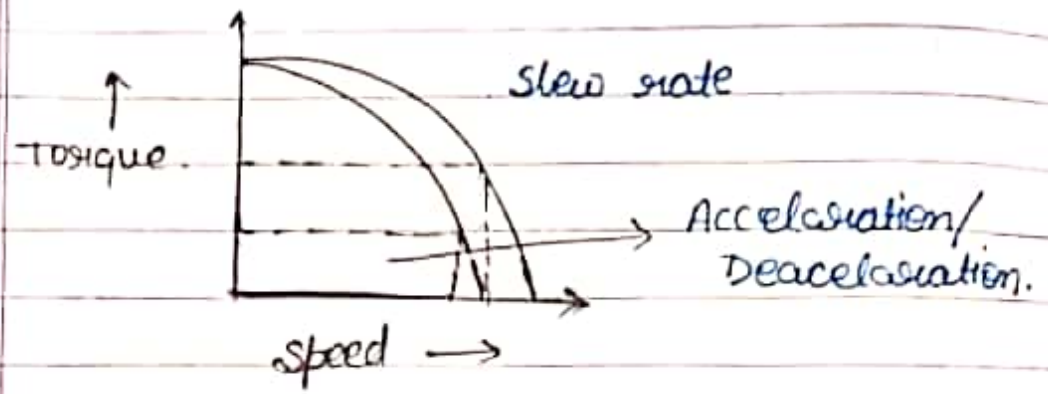 Slew rate
Torque.
Accelaration/
Deacelaration.
speed